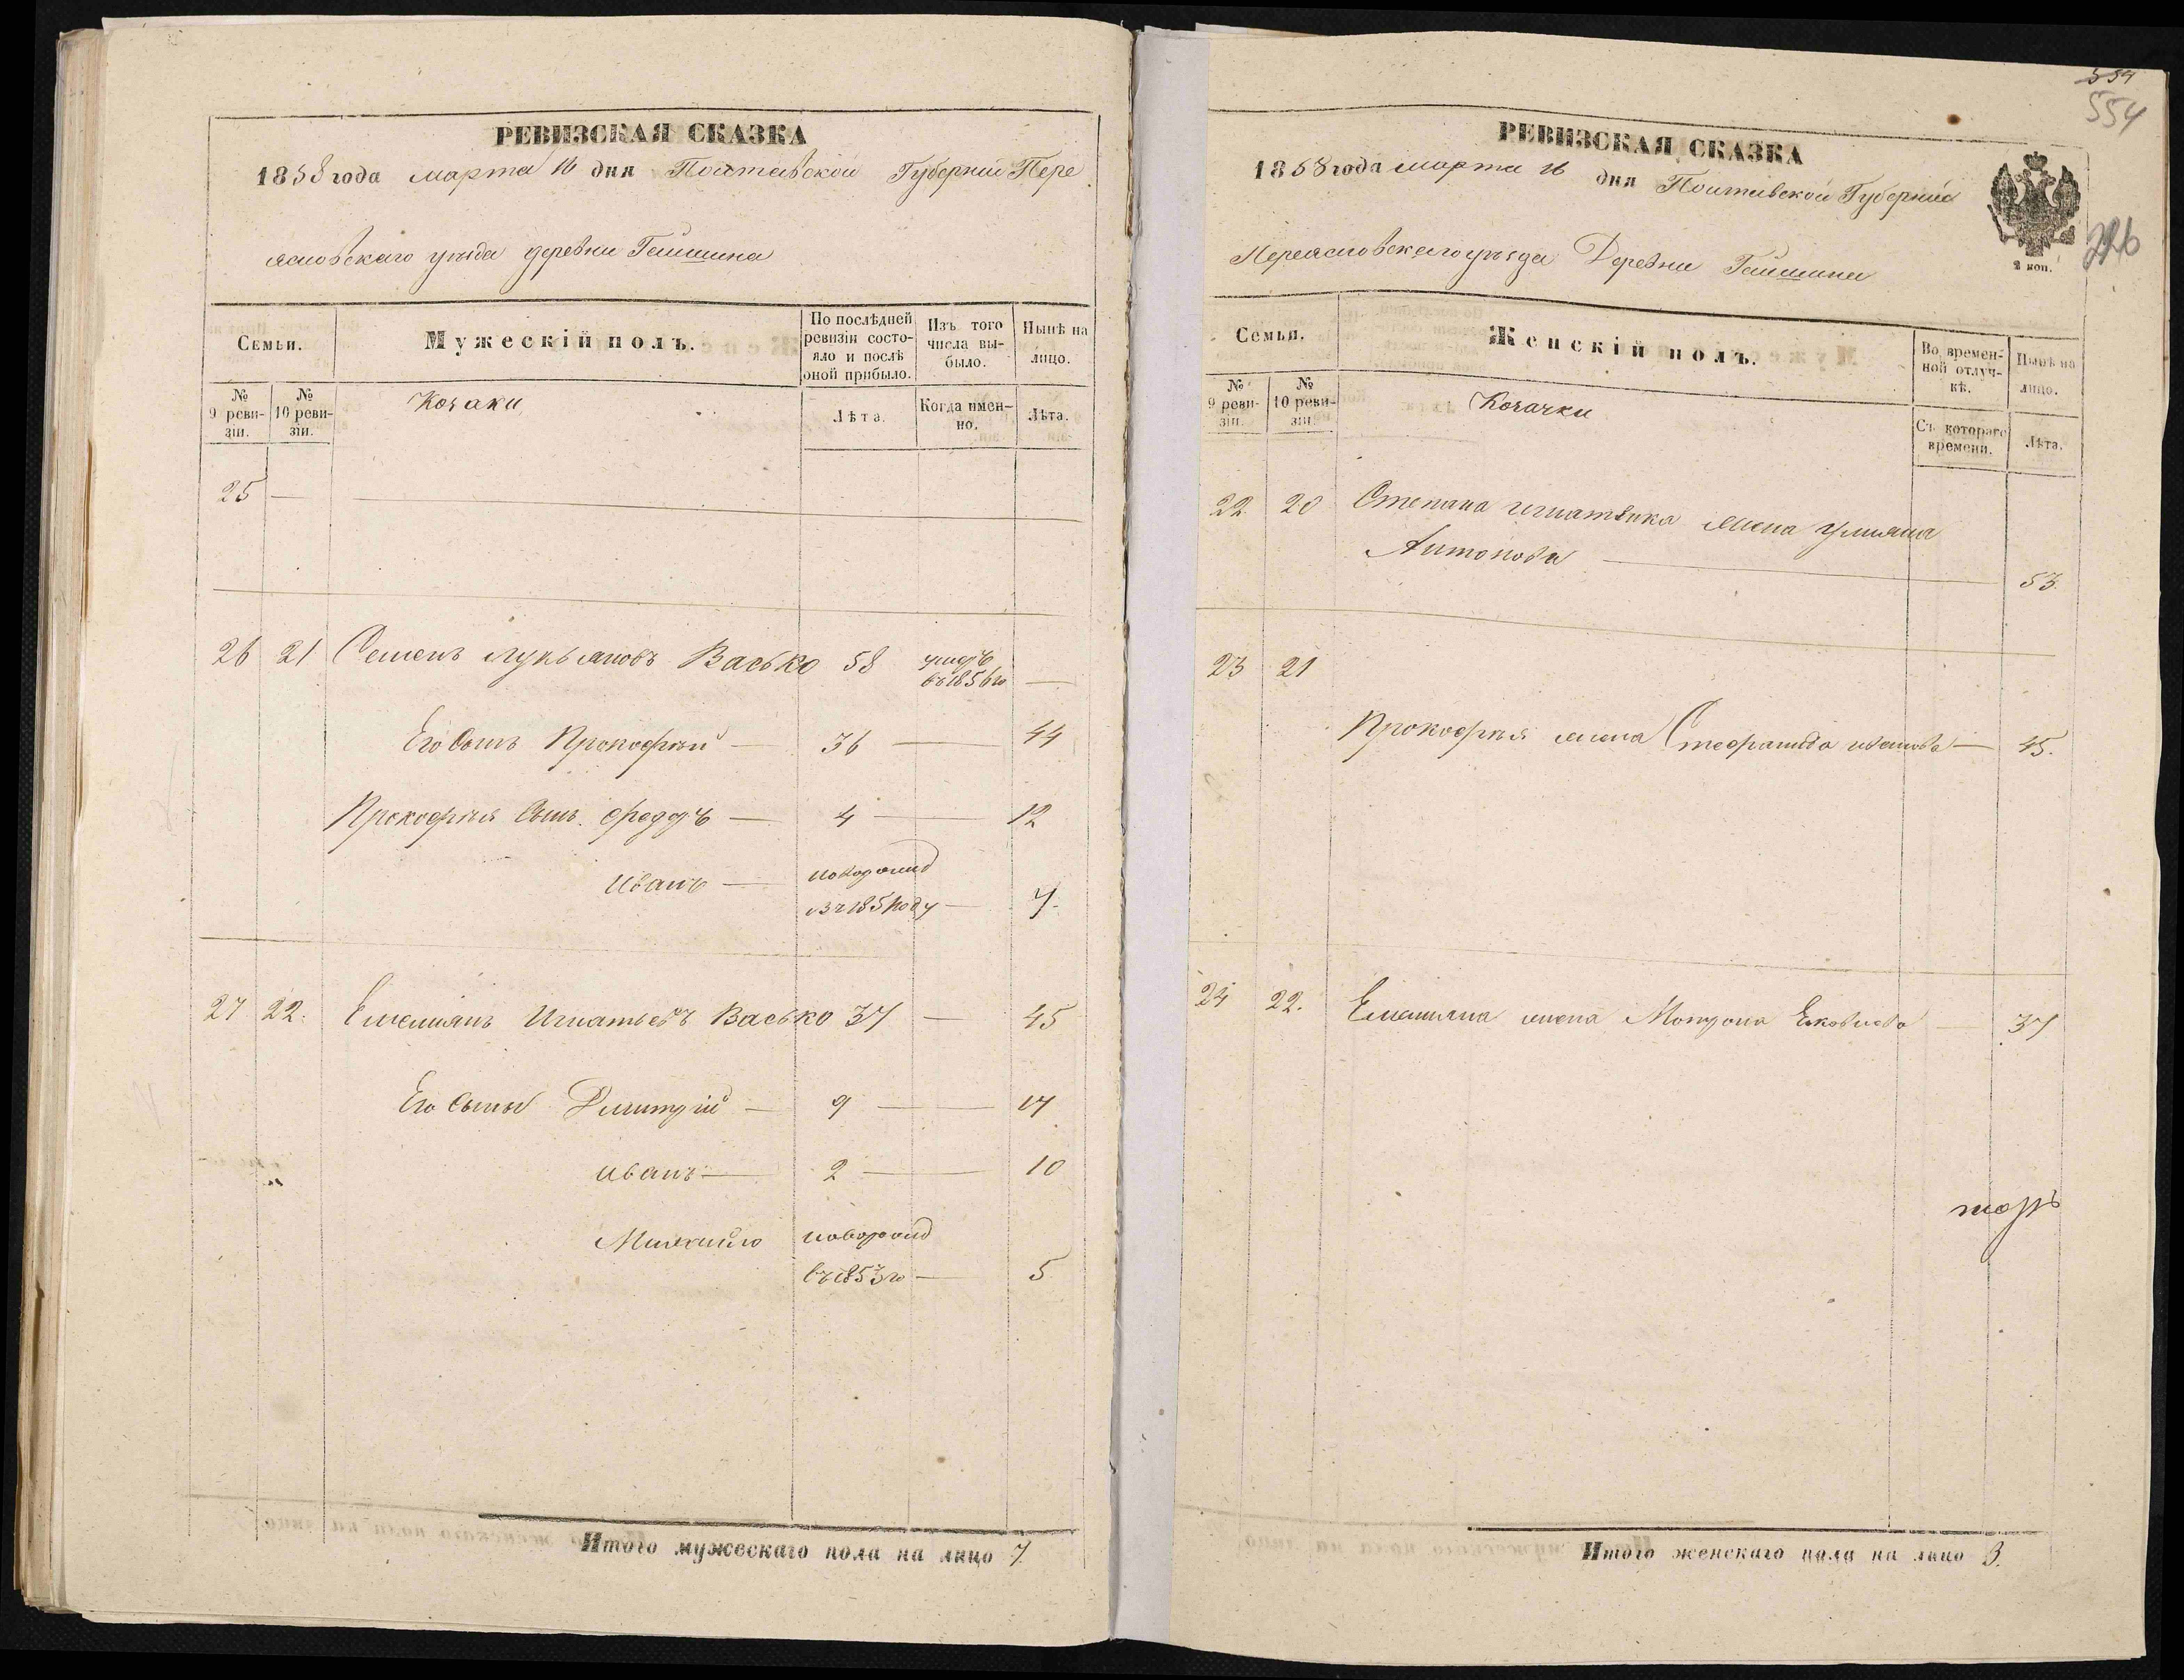 РЕВИЗСКАЯ СКАЗКА
1858 года марта 16 дня Полтавской Губернии Пере
яславского уезда деревни Гайшина
Семьи.
Мужескій полъ.
По послѣдней ревизіи состояло и послѣ оной прибыло.
Изъ того числа выбыло.
Нынѣ на лицо.
№ 9 ревизіи.
№ 10 ревизіи.
Козаки
Лѣта.
Когда именно.
Лѣта.
25 —
26 21 Семенъ Лукьяновъ Васько 58 — 
въ 1856 го
Его Сынъ Прокофій — 36 — 44
Прокофія Сынъ Федоръ — 4 — 12
Иванъ — новорожд
въ 1851 году — 7.
27 22. Емелиянъ Игнатьевъ Васько 37 — 45
Его Сыны Дмитрій — 9 — 17
Иванъ — 2 — 10
Михайло новорожд
въ 1853 го — 5
Итого мужескаго пола на лицо 7
554
554
РЕВИЗСКАЯ СКАЗКА
1858 года марта 16 дня Полтавской Губернии
Переяславского уезда Деревни Гайшина
2 коп.
Семьи.
Женскій полъ.
Во временной отлучкѣ.
Нынѣ на лицо.
№ 9 ревизіи.
№ 10 ревизіи.
Козачки
Съ котораго времени.
Лѣта.
22 20 Степана Игнатенка жена Улияна
Антонова — 53.
23 21
Прокофія жена Стефанида Иванова — 45.
24 22. Емелияна жена Мотрона Яковлева — 37
Итого женскаго пола на лицо 3.